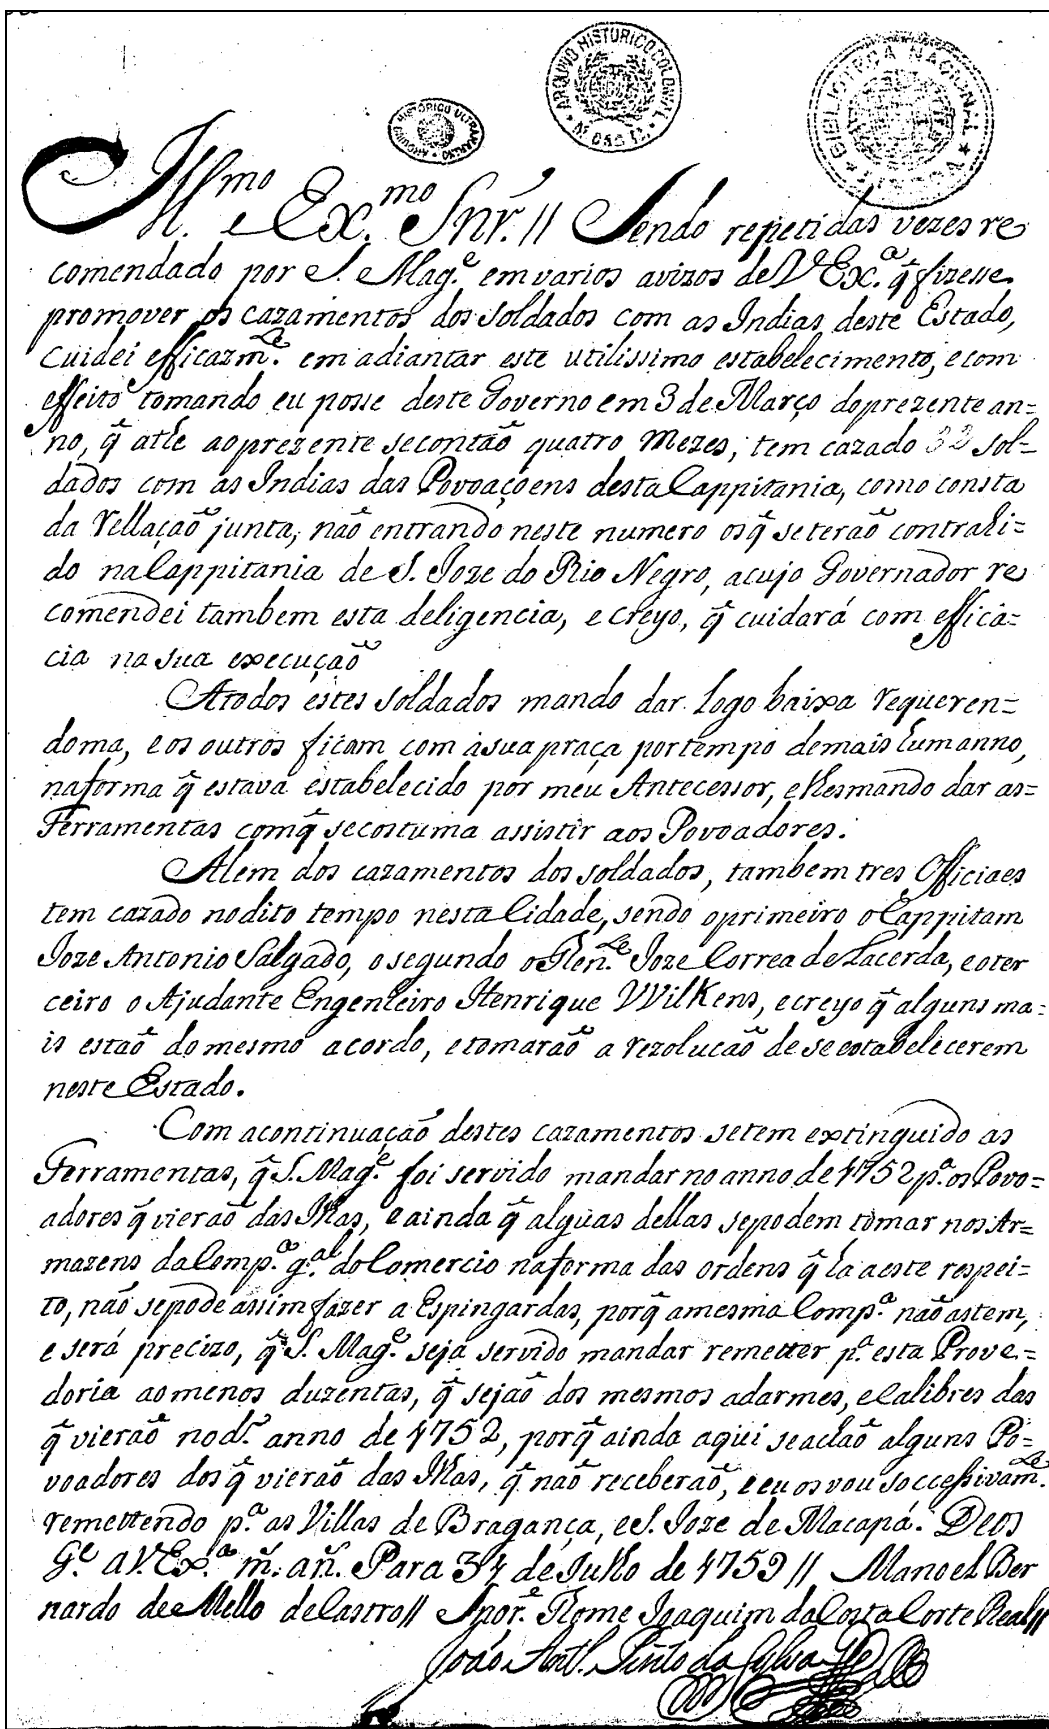 ARQUIVO HISTORICO COLONIAL
ARQUIVO HISTORICO ULTRAMARINO
BIBLIOTECA NACIONAL
Ill.mo e Ex.mo Snr. // Sendo repetidas vezes re
comendado por S. Mag.e em varios avizos de V Ex.a q̃ fizesse
promover os cazamentos dos soldados com as Indias deste Estado,
cuidei efficazm.te em adiantar este utilissimo estabelecimento, e com
effeito tomando eu posse deste Governo em 3 de Março do prezente an-
no, q̃ athe ao prezente se contaõ quatro mezes, tem cazado 32 sol=
dados com as Indias das Povoaçoens desta Cappitania, como consta
da Rellaçaõ junta, naõ entrando neste numero os q̃ se teraõ contrahi=
do na Cappitania de S. Joze do Rio Negro, a cujo Governador re
comendei tambem esta deligencia, e creyo, q̃ cuidará com effica=
cia na sua execuçaõ
A todos estes soldados mando dar logo baixa requeren=
doma, e os outros ficam com a sua praça por tempo de mais hum anno,
na forma q̃ estava estabelecido por meu Antecessor, e lhes mando dar as=
Ferramentas com q̃ se costuma assistir aos Povoadores.
Alem dos cazamentos dos soldados, tambem tres Officiaes
tem cazado no dito tempo nesta Cidade, sendo o primeiro o Cappitam
Joze Antonio Salgado, o segundo o Then.te Joze Correa de Lacerda, e o ter
ceiro o Ajudante Engenheiro Henrique VVilKens, e creyo q̃ alguns ma=
is estaõ do mesmo acordo, e tomaraõ a rezolucaõ de se estabelecerem
neste Estado.
Com a continuaçaõ destes cazamentos se tem extinguido as
Ferramentas, q̃ S. Mag.e foi servido mandar no anno de 1752 p.a os Povo=
adores q̃ vieraõ das Ilhas, e ainda q̃ alguas dellas se podem tomar nos Ar=
mazens da Comp.a g.al do Comercio na forma das ordens q̃ ha a este respei=
to, naõ se pode assim fazer a Espingardas, porq̃ a mesma Comp.a naõ as tem,
e será precizo, q̃ S. Mag.e seja servido mandar remetter p.a esta Prove=
doria ao menos duzentas, q̃ sejaõ dos mesmos adarmes, e Calibres das
q̃ vieraõ no d.o anno de 1752, porq̃ ainda aqui se achaõ alguns Po=
voadores dos q̃ vieraõ das Ilhas, q̃ naõ receberaõ, e eu os vou soccessivam.te
remettendo p.a as Villas de Bragança, e S. Joze de Macapá. Deos
G.e a V. Ex.a m̃. añ. Para 31 de Julho de 1759 // Manoel Ber
nardo de Mello de Castro // Snor. Thome Joaquim da Costa Corte Real //
João Ant.o Pinto da Sylva